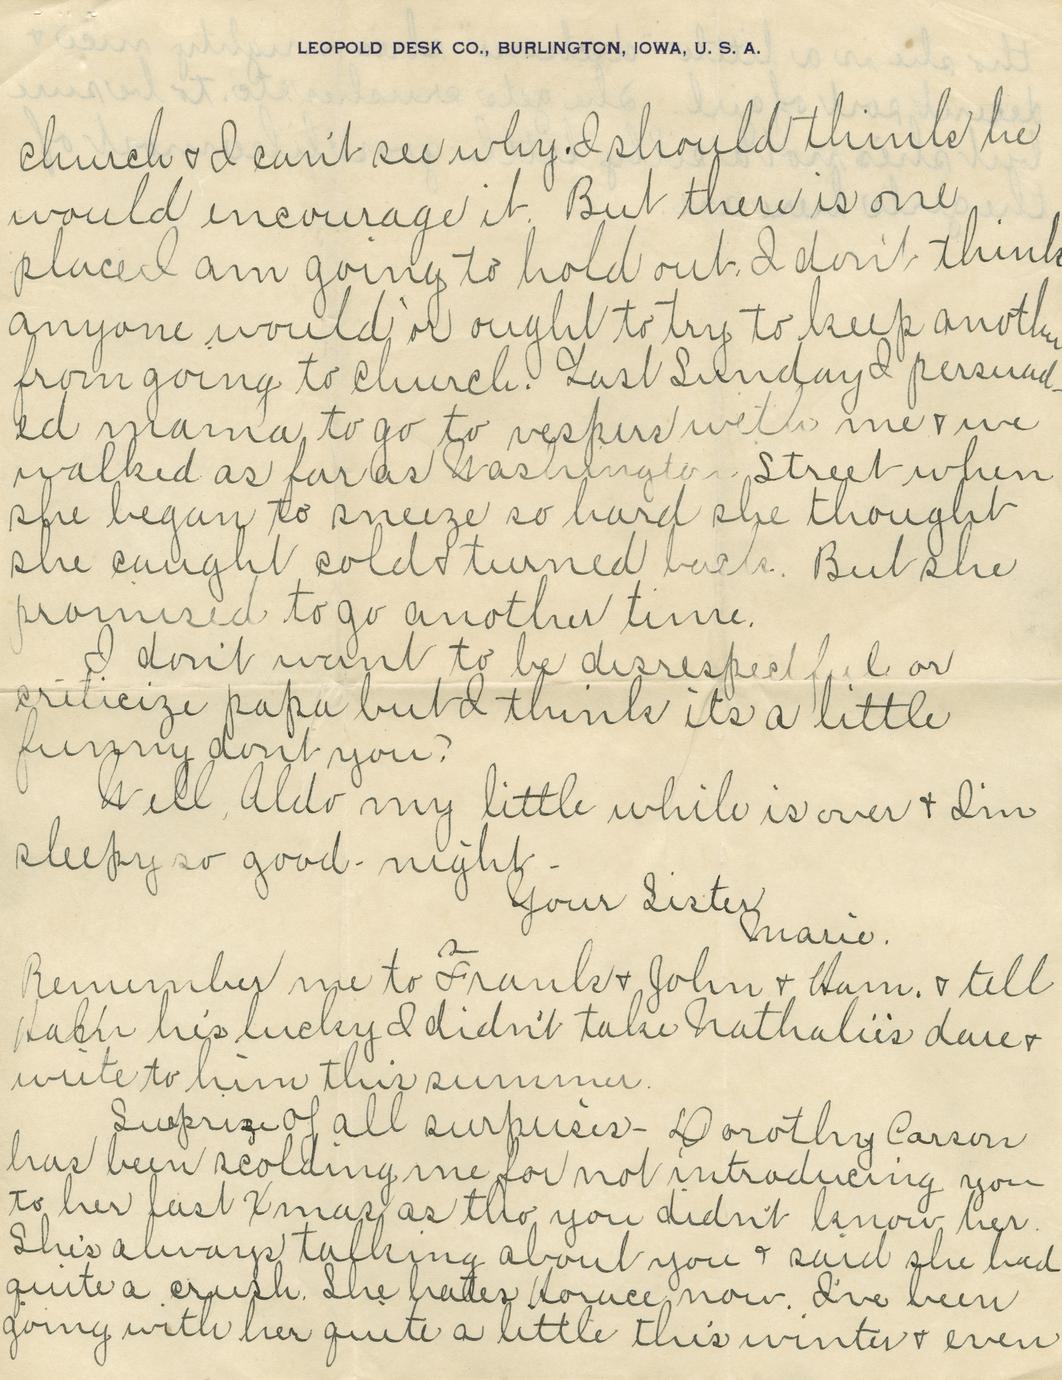 LEOPOLD DESK CO., BURLINGTON, IOWA, U. S. A.
church & I can't see why. I should think he
would encourage it. But there is one
place I am going to hold out. I don't think
anyone would or ought to try to keep another
from going to church. Last Sunday I persuad-
ed mama to go to vespers with me & we
walked as far as Washington Street when
she began to sneeze so hard she thought
she caught cold & turned back. But she
promised to go another time.
I don't want to be disrespectful or
criticize papa but I think its a little
funny dont you?
Well, Aldo my little while is over & I'm
sleepy so good-night-
Your Sister
Marie.
Remember me to Frank & John & Ham. & tell
he's lucky I didn't take Nathalie's dare &
write to him this summer.
Surprize of all surprises- Dorothy Carson
has been scolding me for not introducing you
to her last Xmas as tho you didn't know her.
She's always talking about you & said she had
quite a crush. She hates Horace now. I've been
going with her quite a little this winter & even